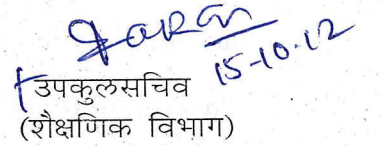 15-10-12
उपकुलसचिव
(शैक्षणिक विभाग)